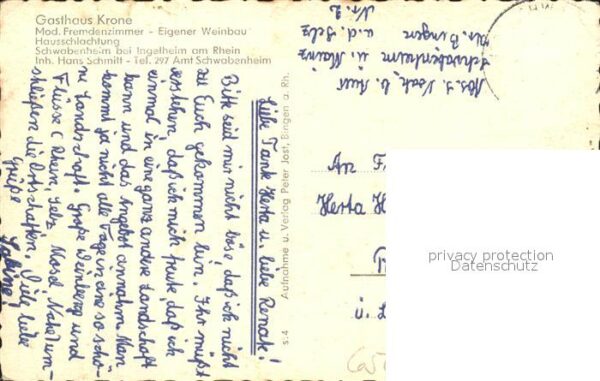 Gasthaus Krone
Mod. Fremdenzimmer - Eigener Weinbau
Hausschlachtung
Schwabenheim bei Ingelheim am Rhein
Inh. Hans Schmitt - Tel. 297 Amt Schwabenheim
Liebe Tante Herta u. liebe Renate!
Bitte seid mir nicht böse, daß ich nicht
zu Euch gekommen bin. Ihr müßt
verstehen, daß ich mich freute, daß ich
einmal in eine ganz andere Landschaft
kann und das Angebot einnahm. Man
kommt ja nicht alle Tage in eine so schö-
ne Landschaft. Große Weinberg und
Flüsse (Rhein, Selz, Mosel, Nahe) um-
schließen die Ortschaften. Viele liebe
Grüße
Sabine
S. 4 Aufnahme u. Verlag Peter Jost, Bingen a. Rh.
Schwabenheim ü. Mainz
Kr. Bingen
a. d. Selz
Nr. 2
An F
Herta H
ü. L
privacy protection
Datenschutz